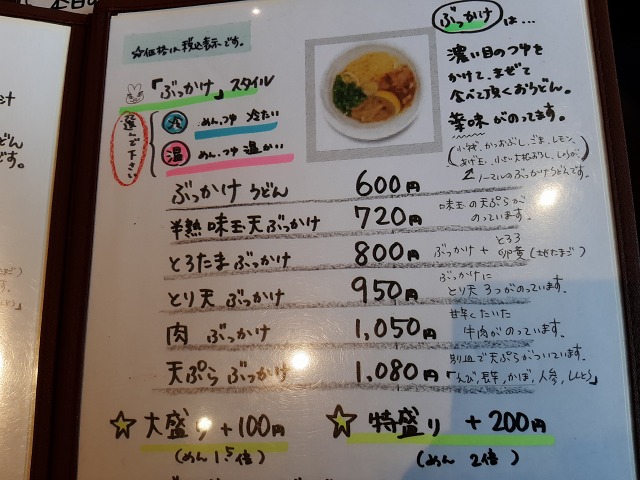 ☆価格は税込表示です。
「ぶっかけ」スタイル
選んで下さい
冷 めん、つゆ 冷たい
温 めん、つゆ 温かい
ぶっかけは…
濃い目のつゆを
かけて、まぜて
食べて頂くおうどん。
薬味がのってます。
(小ねぎ、かつおぶし、ごま、レモン、
あげ玉、小さい大根おろし、しょうが)
ノーマルのぶっかけうどんです。
ぶっかけ うどん 600円
半熟 味玉天ぶっかけ 720円 味玉の天ぷらが
のっています。
とろたま ぶっかけ 800円 ぶっかけ + とろろ
卵黄(地たまご)
とり天 ぶっかけ 950円 ぶっかけに
とり天 3つがのっています。
肉 ぶっかけ 1,050円 甘辛くたいた
牛肉がのっています。
天ぷら ぶっかけ 1,080円 別皿で天ぷらがついています。
「えび、長芋、かぼ、人参、ししとう」
☆大盛り +100円
(めん 1.5倍)
☆特盛り +200円
(めん 2倍)